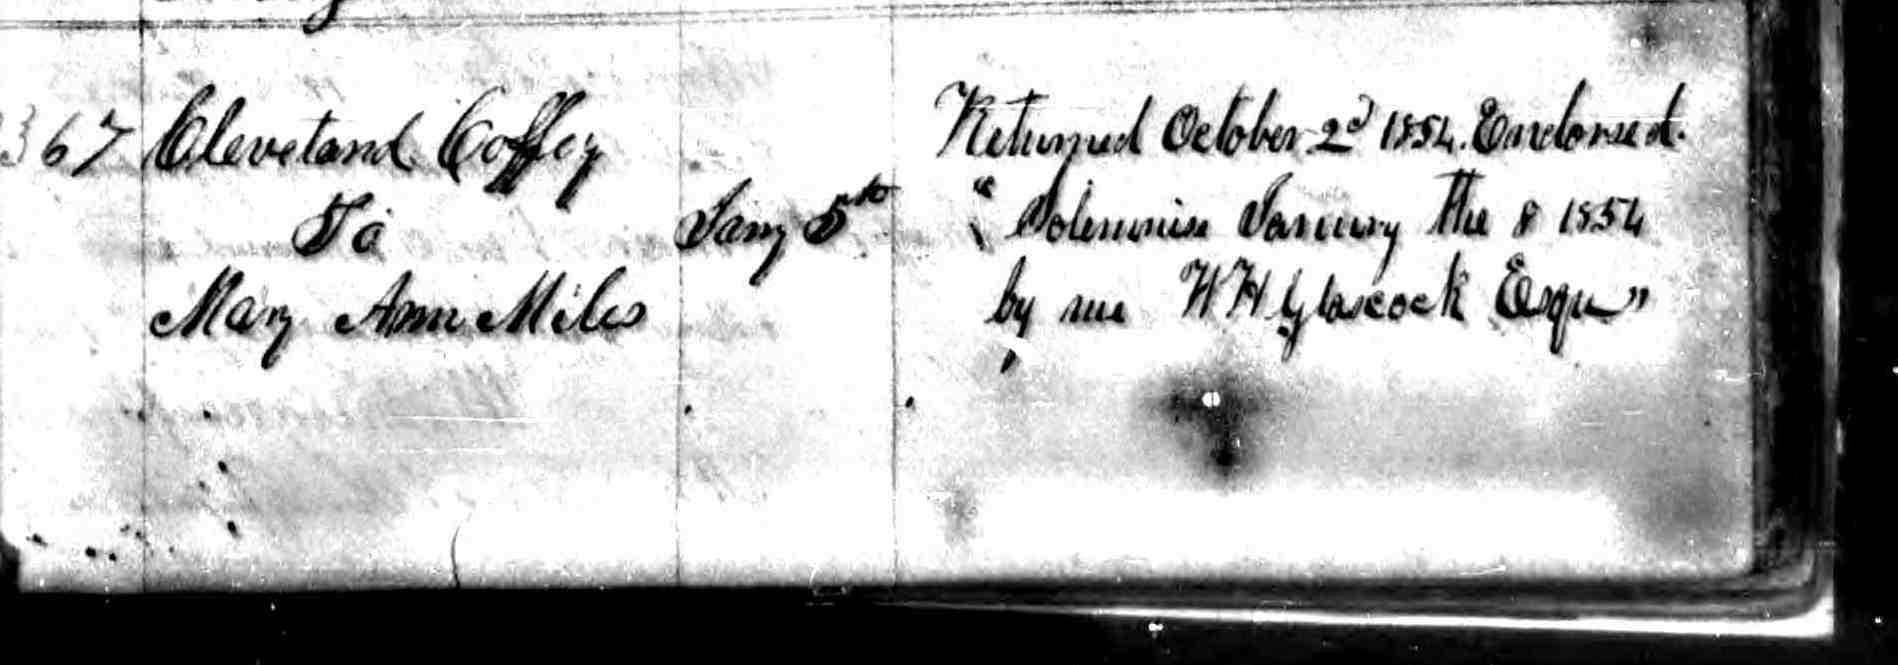 367 Cleveland Coffey
To
Mary Ann Miles
Jany 5th
Returned October 2d 1854. Endorsed.
"Solemnise January the 8 1854
by me W H Glascock Esqr"